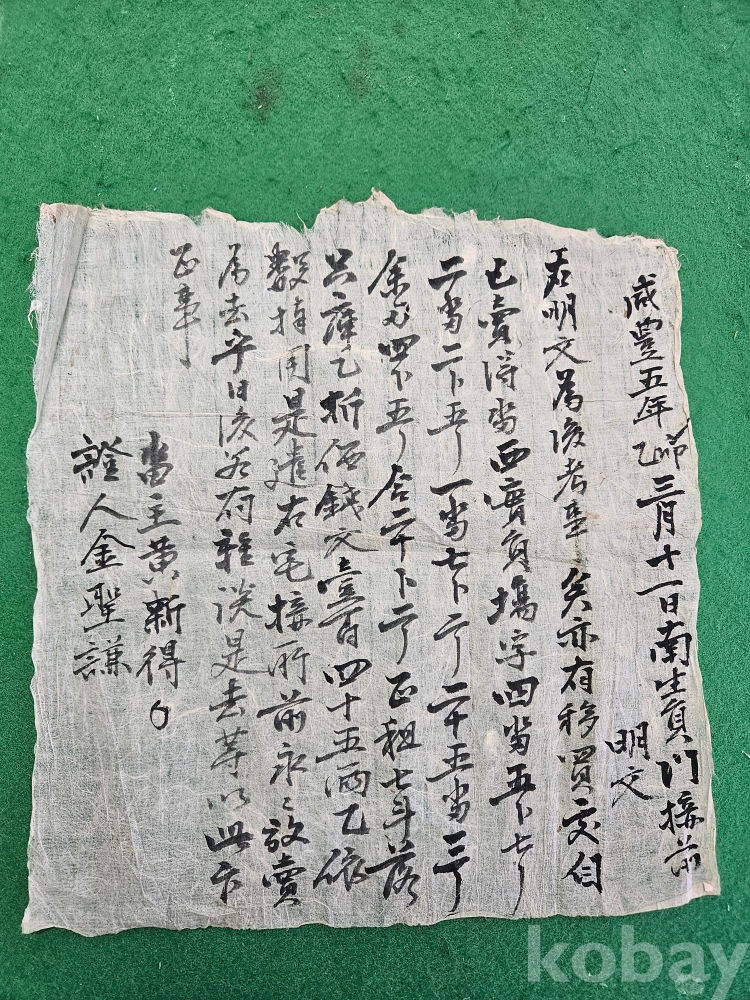 咸豊五年乙卯三月十一日南生員川接前
明文
右明文爲後考事矣亦有移買交自
己賣得畓西賣員塲字四畓五卜七
二畓二卜五 一畓七卜 二十五畓三
余 四卜五 合二十卜 正租七斗落
只庫乙折価錢文壹百四十五兩乙依
數捧用是遣右宅接所前永〻放賣
爲去乎日後若有雜談是去等以此卞
正事
畓主黄新得
證人金聖謙
kobay